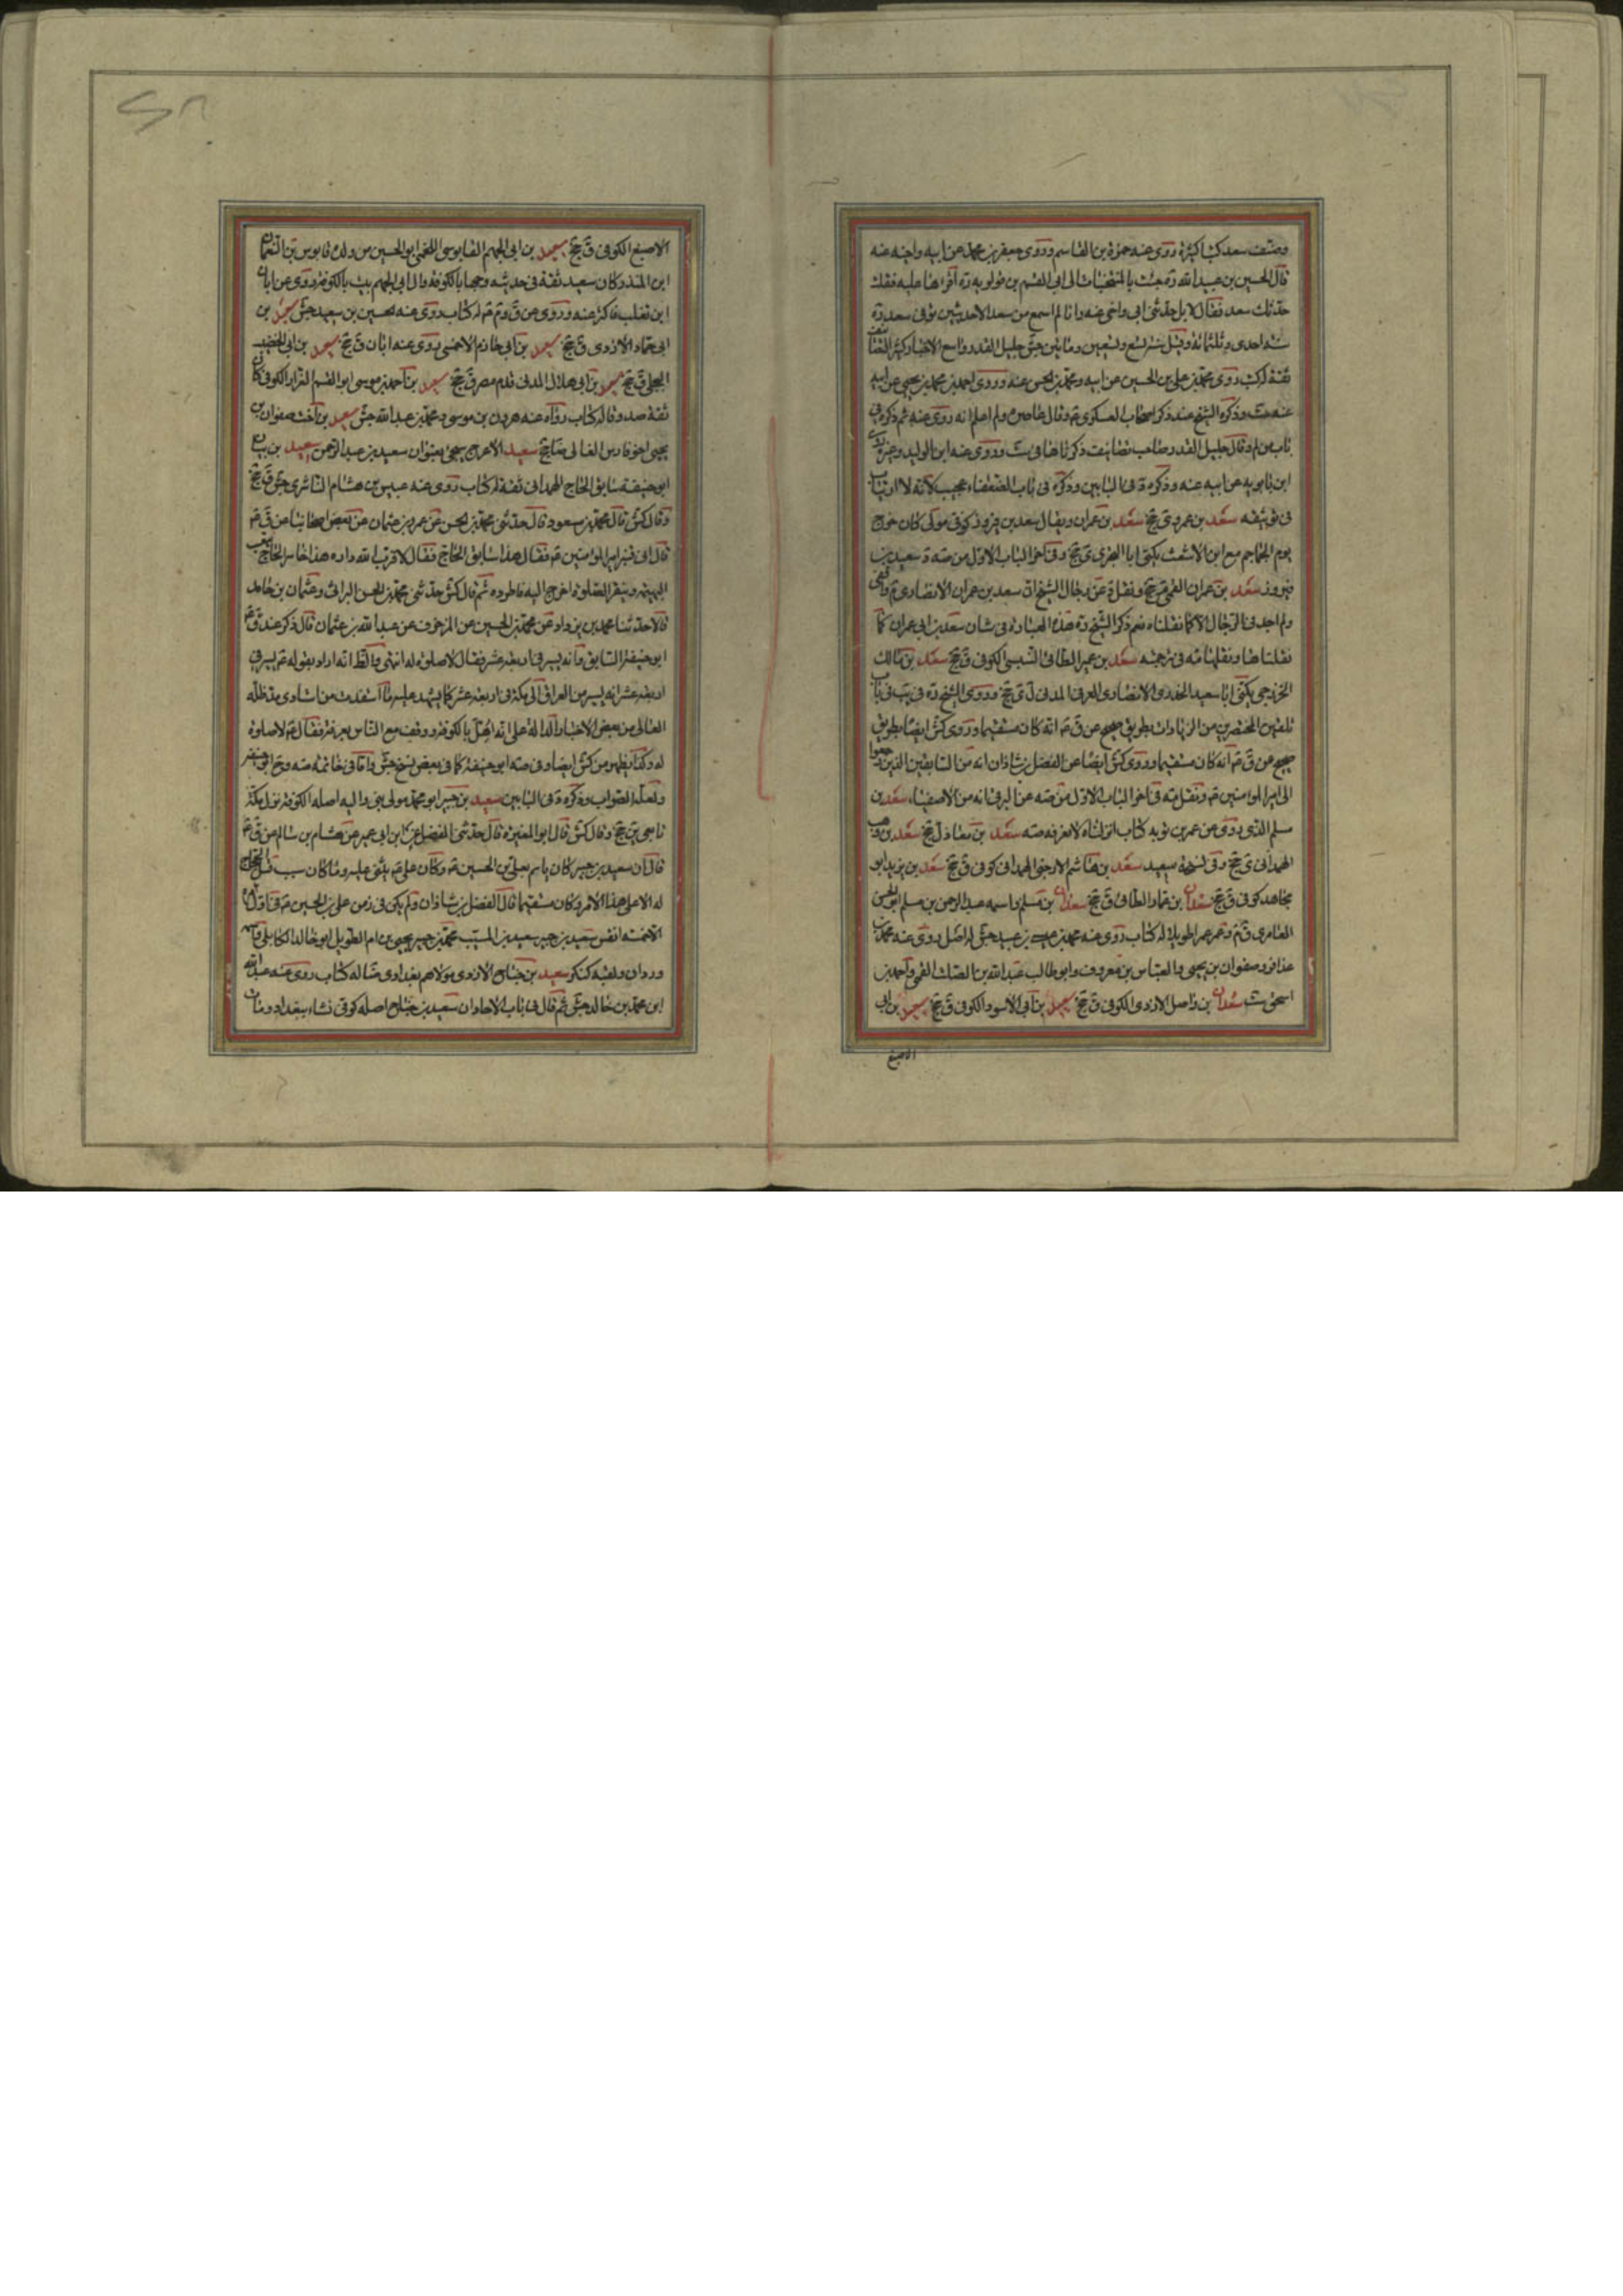 وصنف سعد كتبا كثيرة روى عنه حمزة بن القاسم وروى جعفر بن محمد عن ابيه واخيه عنه
قال الحسين بن عبيد الله ره جئت بالمنتخبات الى ابى القسم بن قولويه ره اقرأها عليه فقلت
حدثك سعد فقال لا بل حدثنى ابى واخى عنه وانا لم اسمع من سعد الا حديثين توفى سعد ره
سنة احدى وثلثمائة وقيل سنة تسع وتسعين ومأتين جش جليل القدر واسع الاخبار كثير التصانيف
ثقة ست روى محمد بن على بن الحسين عن ابيه ومحمد بن الحسن عنه وروى احمد بن محمد بن يحيى عن ابيه
عنه ست وذكره الشيخ عند ذكر اصحاب العسكرى ع وقال عاصره ولم اعلم انه روى عنه ثم ذكره فى
باب من لم وقال جليل القدر صاحب تصانيف ذكرناها فى ست وروى عنه ابن الوليد وغيره
ابن بابويه عن ابيه عنه وذكره د فى البابين وذكره فى باب الضعفاء عجيب لانه لا ارتياب
فى توثيقه سعد بن عمرو ى جخ سعد بن عمران ويقال سعد بن فيروز كوفى مولى كان خرج
يوم الجماجم مع ابن الاشعث يكنى ابا البخترى ى جخ وفى اخر الباب الاول من صه سعيد بن
فيروز سعد بن عمران القمى جخ ونقل د عن رجال الشيخ ان سعد بن عمران الانصارى
ولم اجد فى الرجال الا كما نقلناه نعم ذكر الشيخ ره هذه العبارة فى شان سعد بن ابى عمران كما
نقلناها ونقلها مه فى ترجمته سعد بن عمير الطائى السنبسى الكوفى ق جخ سعد بن مالك
الخزرجى يكنى ابا سعيد الخدرى الانصارى العربى المدنى ل ى جخ وروى الشيخ ره فى يب فى باب
تلقين المحتضرين من الزيادات بطريق صحيح عن ق ع انه كان مستقيما وروى كش ايضا بطريق
صحيح عن ق ع انه كان مستقيما وروى كش ايضا عن الفضل بن شاذان انه من السابقين الذين رجعوا
الى امير المؤمنين ع ونقل مه فى اخر الباب الاول من صه عن البرقى انه من الاصفياء سعد بن
مسلم الذى روى عن عمر بن توبه كتاب انا انزلناه لا نعرفه صه سعد بن معاذ ل جخ سعد بن وهب
الهمدانى ى جخ وفى نسخة سعيد سعد بن هاشم الارحبى الهمدانى كوفى ق جخ سعد بن يزيد ابو
مجاهد كوفى ق جخ سعدان بن عمار الطائى ق جخ سعدان بن مسلم واسمه عبد الرحمن بن مسلم ابو الحسن
العامرى ق م وعمر عمرا طويلا له كتاب روى عنه محمد بن عيسى بن عبيد جش له اصل روى عنه محمد بن
عذافر وصفوان بن يحيى والعباس بن معروف وابو طالب عبد الله بن الصلت القمى واحمد بن
اسحق ست سعدان بن واصل الازدى الكوفى ق جخ سعيد بن ابى الاسود الكوفى ق جخ سعيد بن ابى
الاصبغ
الاصبغ الكوفى ق جخ سعيد بن ابى الجهم القابوسى اللخمى ابو الحسين من ولد قابوس بن النعمان
ابن المنذر كان سعيد ثقة فى حديثه وجها بالكوفة وال ابى الجهم بيت بالكوفة روى عن ابان
ابن تغلب فاكثر عنه وروى عن ق وم ع له كتاب روى عنه الحسين بن سعيد جش سعيد بن
ابى حماد الازدى ق جخ سعيد بن ابى خازم الاحمسى روى عنه ابان ق جخ سعيد بن ابى الخضيب
البجلى ق جخ سعيد بن ابى هلال المدنى قدم مصر ق جخ سعيد بن احمد بن موسى ابو القسم الغراد الكوفى كان
ثقة صدوقا له كتاب رواه عنه هرون بن موسى ومحمد بن عبد الله جش سعيد بن اخت صفوان بن
يحيى اخو فارس الغالى ضا جخ سعيد الاعرج سيجئ بعنوان سعيد بن عبد الرحمن سعيد بن بيان
ابو حنيفة سابق الحاج الهمدانى ثقة له كتاب روى عنه عبيس بن هشام الناشرى جش ق جخ
وقال كش قال محمد بن مسعود قال حدثنى محمد بن الحسن عن عمر بن عثمان عن بعض اصحابنا عن ق ع
قال اتى قنبر امير المؤمنين ع فقال هذا سابق الحاج فقال لا قرب الله داره هذا خاسر الحاج يتعب
البهيمة وينقر الصلوة اخرج اليه فاطرده ثم قال كش حدثنى محمد بن الحسن البراثى وعثمان بن حامد
قالا حدثنا محمد بن يزداد عن محمد بن الحسين عن المزخرف عن عبد الله بن عثمان قال ذكر عند ق ع
ابو حنيفة السابق وانه يسير فى اربعة عشر فقال لا صلوة له انتهى والظ انه اراد بقوله ع يسير فى
اربعة عشر انه يسير من العراق الى مكة فى اربعة عشر كما يشهد عليه ما استفدت من استادى مد ظله
العالى من بعض الاخبار الدالة على انه اهل بالكوفة ووقف مع الناس بعرفة فقال ع لا صلوة
له وكذا يظهر من كش ايضا وفى صه ابو حنيفة كما فى بعض نسخ جش واما فى خاتمة صه وجخ ابو خنيفر
ولعله الصواب وذكره د فى البابين سعيد بن جبير ابو محمد مولى بنى والبه اصله الكوفة نزل مكة
تابعى ين جخ وقال كش قال ابو المغيرة قال حدثنى الفضل عن ابن ابى عمير عن هشام بن سالم عن ق ع
قال ان سعيد بن جبير كان ياتم بعلى بن الحسين ع وكان على ع يثنى عليه وما كان سبب قتل الحجاج
له الا على هذا الامر وكان مستقيما قال الفضل بن شاذان ولم يكن فى زمن على بن الحسين ع فى اول امره
الا خمسة انفس سعيد بن جبير سعيد بن المسيب محمد بن جبير يحيى بن ام الطويل ابو خالد الكابلى واسمه
وردان ولقبه كنكر سعيد بن جناح الازدى مولاهم بغدادى ضا له كتاب روى عنه عبد الله
ابن محمد بن خالد جش ثم قال فى باب الاحاد ان سعيد بن جناح اصله كوفى نشاء ببغداد ومات